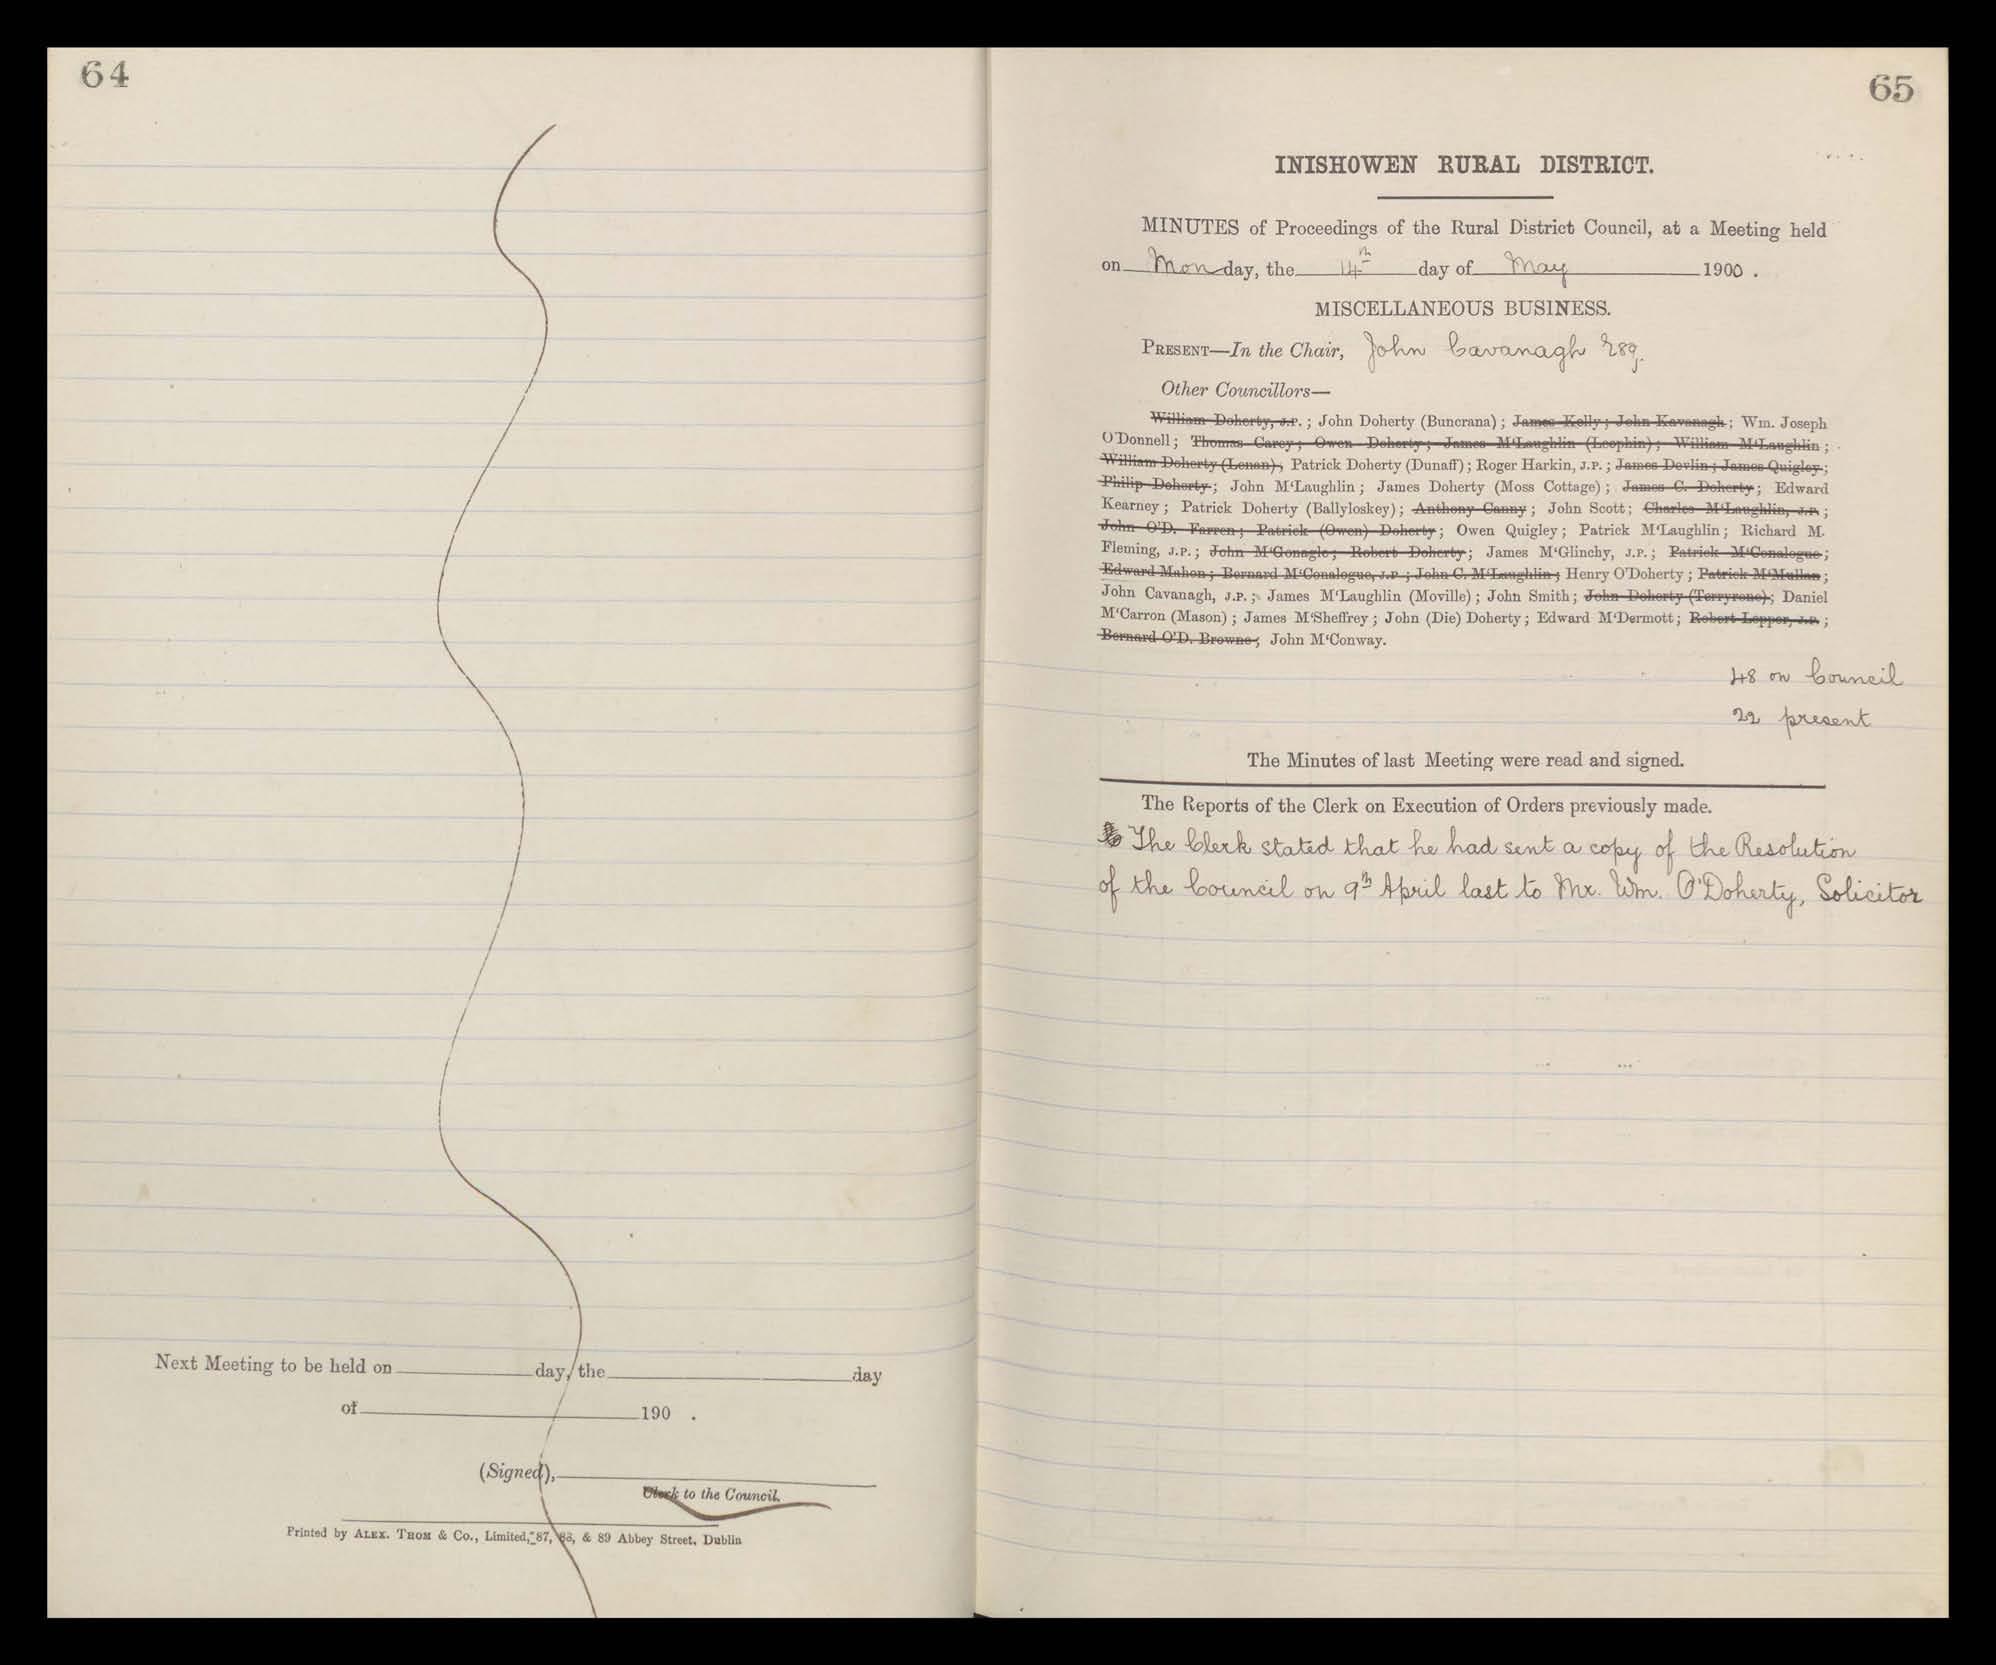 64
Next Meeting to be held on day, the day
of 190 .
(Signed),
Clerk to the Council.
Printed by ALEX. THOM & Co., Limited, 87, 88, & 89 Abbey Street, Dublin
65
INISHOWEN RURAL DISTRICT.
MINUTES of Proceedings of the Rural District Council, at a Meeting held
on Monday, the 14th day of May 1900 .
MISCELLANEOUS BUSINESS.
PRESENT—In the Chair, John Cavanagh Esq.
Other Councillors—
William Doherty, J.P. ; John Doherty (Buncrana) ; James Kelly ; John Kavanagh ; Wm. Joseph
O'Donnell ; Thomas Carey ; Owen Doherty ; James M'Laughlin (Leophin) ; William M'Laughlin ;
William Doherty (Lenan) ; Patrick Doherty (Dunaff) ; Roger Harkin, J.P. ; James Devlin ; James Quigley ;
Philip Doherty ; John M'Laughlin ; James Doherty (Moss Cottage) ; James C. Doherty ; Edward
Kearney ; Patrick Doherty (Ballyloskey) ; Anthony Canny ; John Scott ; Charles M'Laughlin, J.P. ;
John O'D. Farren ; Patrick (Owen) Doherty ; Owen Quigley ; Patrick M'Laughlin ; Richard M.
Fleming, J.P. ; John M'Gonagle ; Robert Doherty ; James M'Glinchy, J.P. ; Patrick M'Conalogue ;
Edward Mahon ; Bernard M'Conalogue, J.P. ; John C. M'Laughlin ; Henry O'Doherty ; Patrick M'Mullan ;
John Cavanagh, J.P. ; James M'Laughlin (Moville) ; John Smith ; John Doherty (Terryrone) ; Daniel
M'Carron (Mason) ; James M'Sheffrey ; John (Die) Doherty ; Edward M'Dermott ; Robert Lepper, J.P. ;
Bernard O'D. Browne ; John M'Conway.
48 on Council
22 present
The Minutes of last Meeting were read and signed.
The Reports of the Clerk on Execution of Orders previously made.
The Clerk stated that he had sent a copy of the Resolution
of the Council on 9th April last to Mr. Wm. O'Doherty, Solicitor